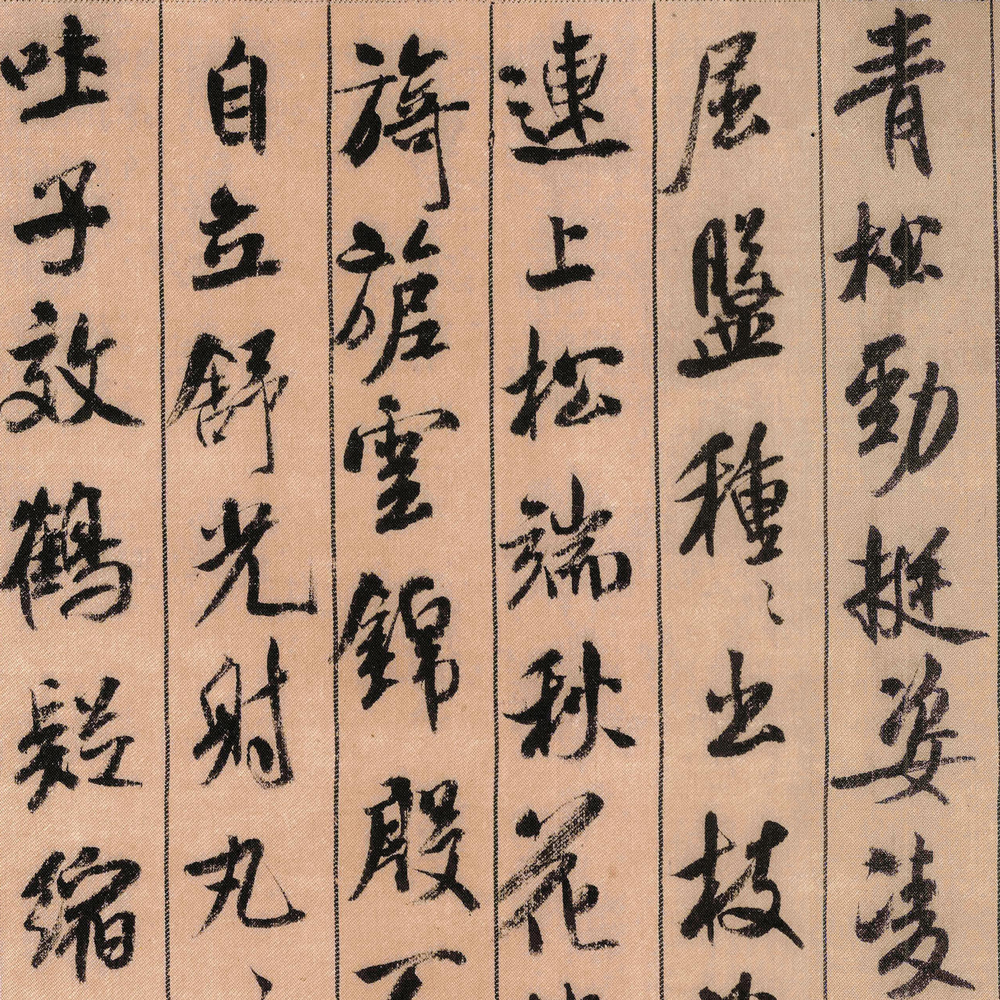 青松勁挺姿凌
屈盤種〻出枝
連上松端秋花
旖旎雲錦殷不
自立舒光射丸
吐子效鶴疑縮